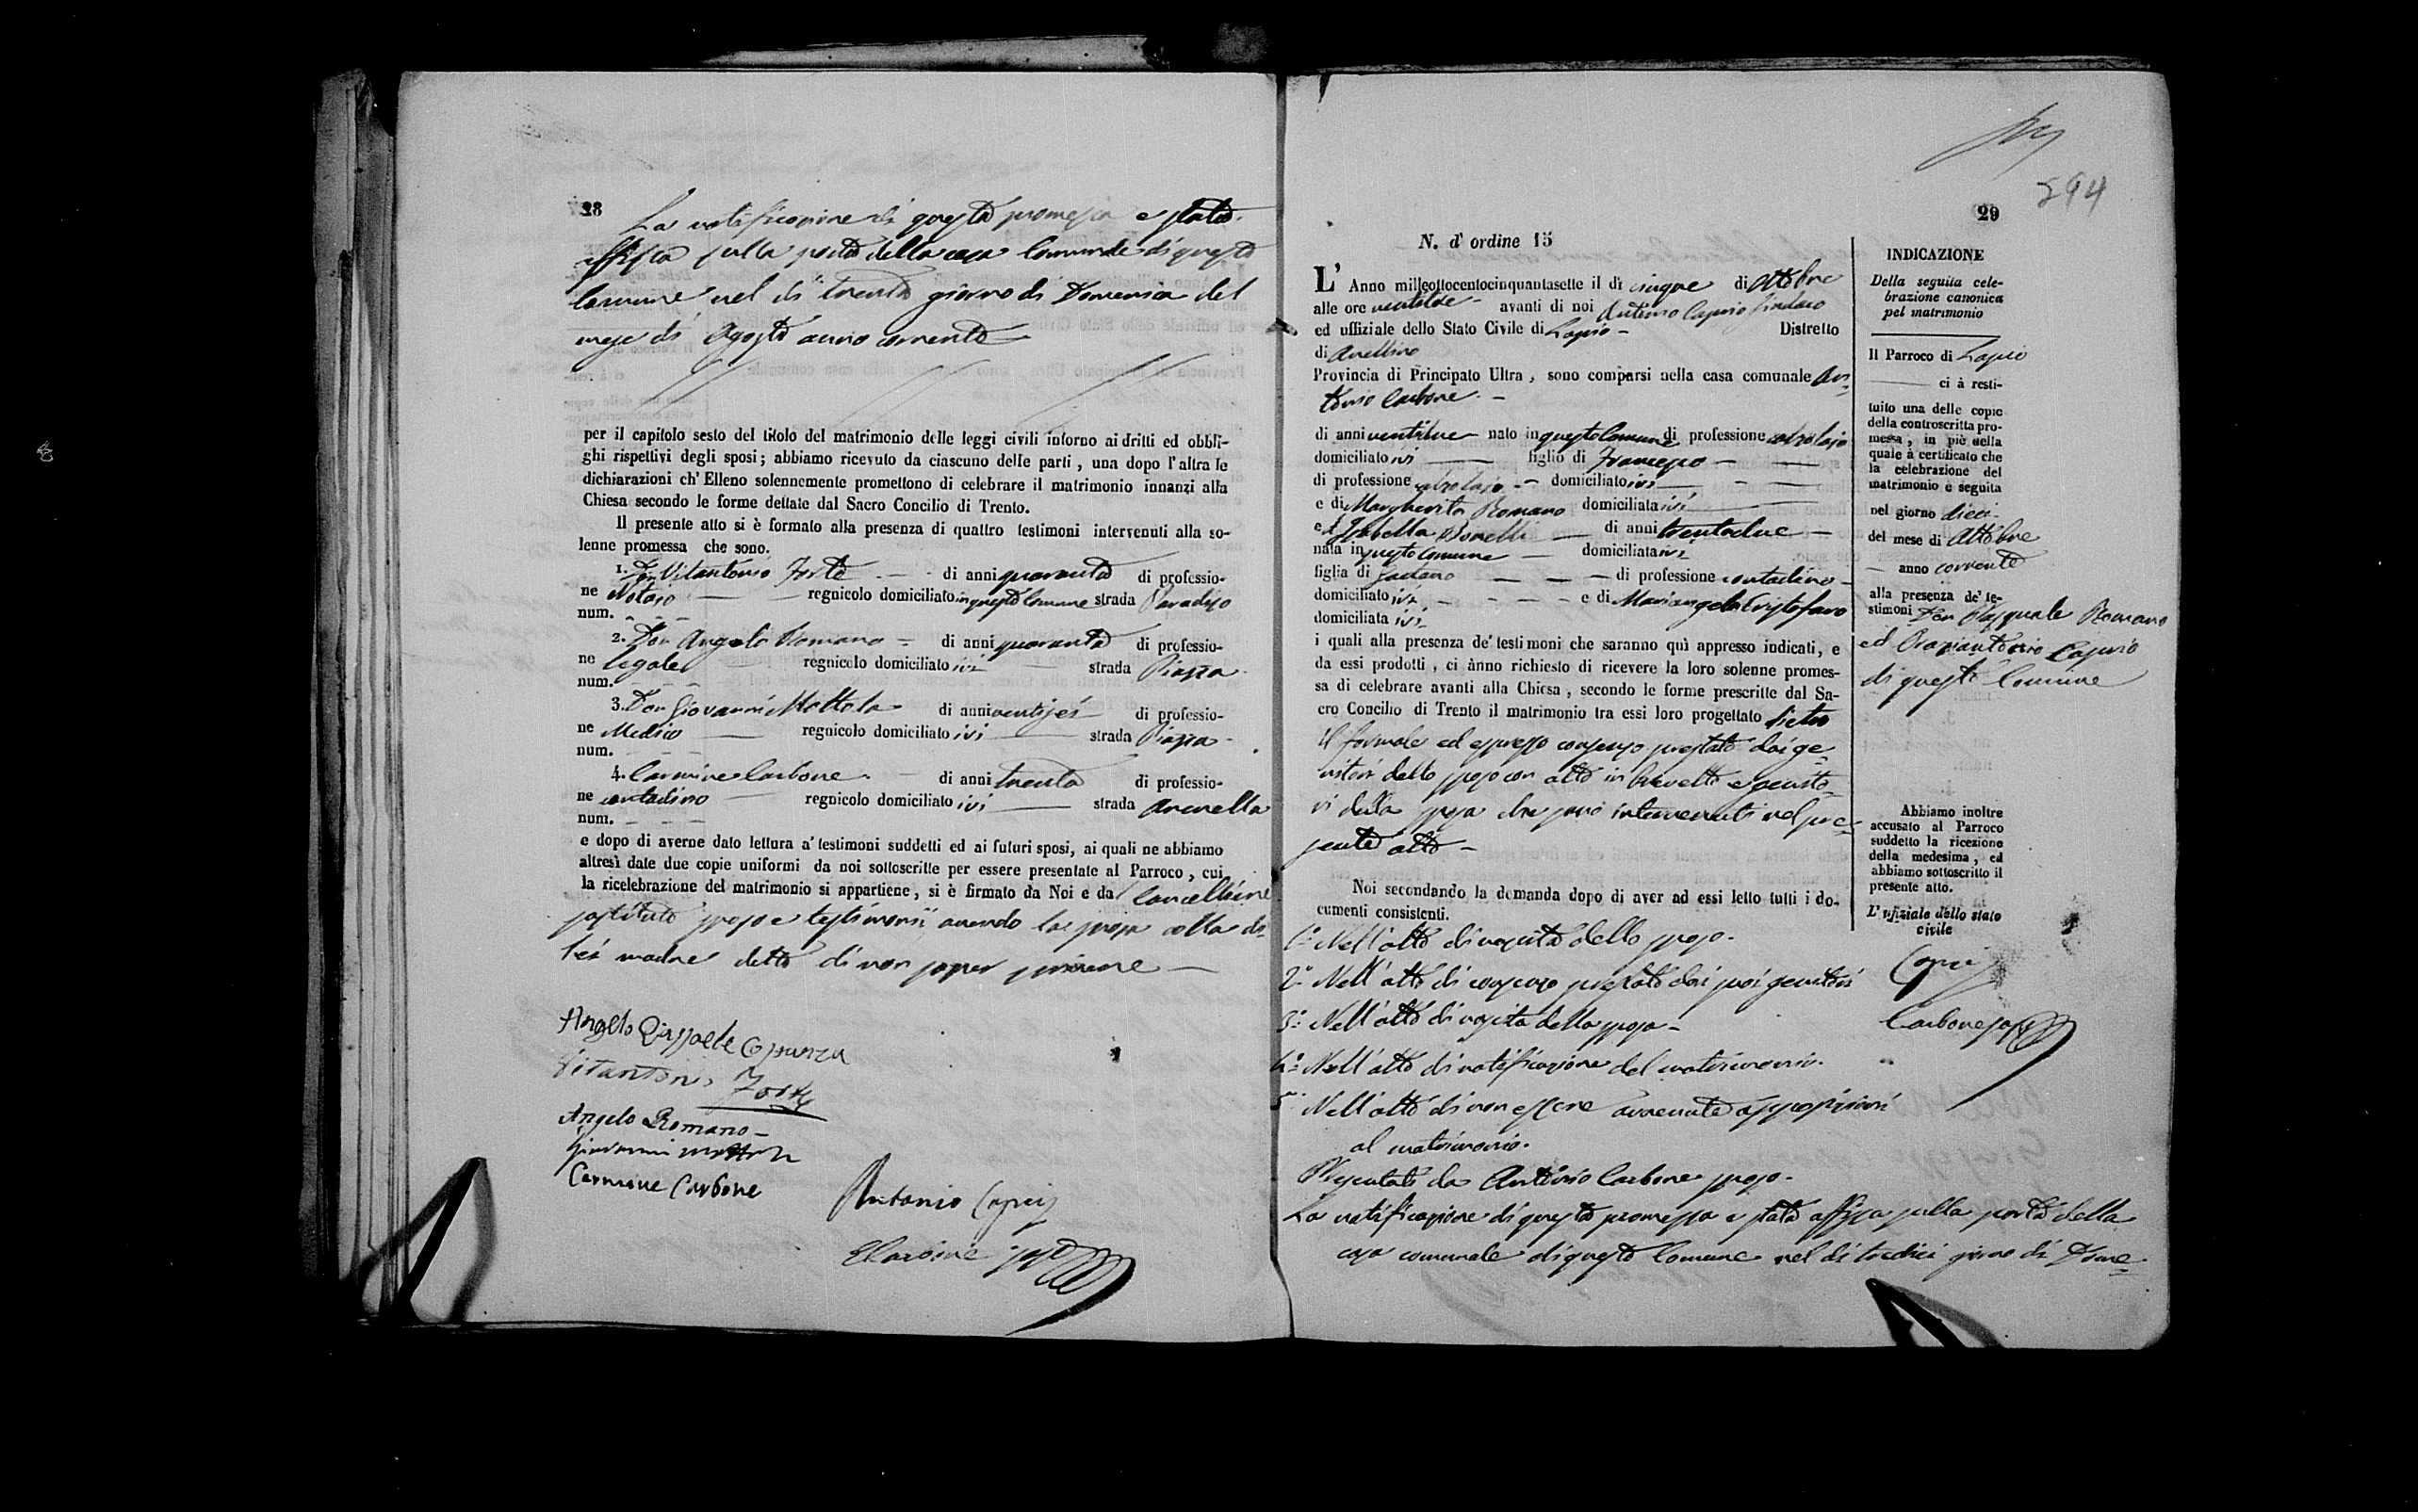 28
La notificazione di questa promessa è stata
affissa sulla porta della casa Comunale di questo
Comune nel dì trenta giorno di Domenica del
mese di Agosto anno corrente
per il capitolo sesto del titolo del matrimonio delle leggi civili intorno ai dritti ed obbli-
ghi rispettivi degli sposi; abbiamo ricevuto da ciascuno delle parti, una dopo l'altra le
dichiarazioni ch' Elleno solennemente promettono di celebrare il matrimonio innanzi alla
Chiesa secondo le forme dettate dal Sacro Concilio di Trento.
Il presente atto si è formato alla presenza di quattro testimoni intervenuti alla so-
lenne promessa che sono.
1. Don Vitantonio Forte di anni quaranta di professio-
ne Notaio regnicolo domiciliato in questo Comune strada Paradiso
num.
2. Don Angelo Romano di anni quaranta di professio-
ne legale regnicolo domiciliato ivi strada Piazza
num.
3. Don Giovanni Mottola di anni ventisei di professio-
ne Medico regnicolo domiciliato ivi strada Piazza
num.
4. Carmine Carbone di anni trenta di professio-
ne contadino regnicolo domiciliato ivi strada Arenella
num.
e dopo di averne dato lettura a' testimoni suddetti ed ai futuri sposi, ai quali ne abbiamo
altresì date due copie uniformi da noi sottoscritte per essere presentate al Parroco, cui
la ricelebrazione del matrimonio si appartiene, si è firmato da Noi e da Cancelliere
sostituto sposo e testimonii avendo la sposa colla di
lei madre detto di non saper scrivere
Angelo Raffaele Costanza
Vitantonio Forte
Angelo Romano
Giovanni Mottola
Carmine Carbone
Antonio Caprio
Carbone sost
294
29
N. d' ordine 15
L' Anno milleottocentocinquantasette il dì cinque di Ottobre
alle ore ventidue avanti di noi Antonio Caprio Sindaco
ed uffiziale dello Stato Civile di Lapio Distretto
di Avellino
Provincia di Principato Ultra, sono comparsi nella casa comunale An-
tonio Carbone
di anni ventidue nato in questo Comune di professione
domiciliato ivi figlio di Francesco
di professione domiciliato ivi
e di Margherita Romano domiciliata ivi
e Isabella Bonelli di anni trentadue
nata in questo Comune domiciliata ivi
figlia di Gaetano di professione contadino
domiciliato ivi e di Mariangela Cristofaro
domiciliata ivi
i quali alla presenza de' testimoni che saranno quì appresso indicati, e
da essi prodotti, ci ànno richiesto di ricevere la loro solenne promes-
sa di celebrare avanti alla Chiesa, secondo le forme prescritte dal Sa-
cro Concilio di Trento il matrimonio tra essi loro progettato dietro
il formale ed espresso consenso prestato dai ge-
nitori dello sposo con atto in brevetto e genito-
ri della sposa che sono intervenuti nel pre-
sente atto
Noi secondando la domanda dopo di aver ad essi letto tutti i do-
cumenti consistenti.
1° Nell'atto di nascita dello sposo
2° Nell'atto di consenso prestato dai suoi genitori
3° Nell'atto di nascita della sposa
4° Nell'atto di notificazione del matrimonio
5° Nell'atto di non essere avvenute opposizioni
al matrimonio.
Presentati da Antonio Carbone sposo
La notificazione di questa promessa è stata affissa sulla porta della
casa comunale di questo Comune nel dì tredici giorno di Dome-
INDICAZIONE
Della seguita cele-
brazione canonica
pel matrimonio
Il Parroco di Lapio
ci à resti-
tuito una delle copie
della controscritta pro-
messa, in piè della
quale à certificato che
la celebrazione del
matrimonio è seguita
nel giorno dieci
del mese di Ottobre
anno corrente
alla presenza de' te-
stimoni Don Pasquale Romano
ed Oraziantonio Caprio
di questo Comune
Abbiamo inoltre
accusato al Parroco
suddetto la ricezione
della medesima, ed
abbiamo sottoscritto il
presente atto.
L' ufiziale dello stato
civile
Caprio
Carbone sost